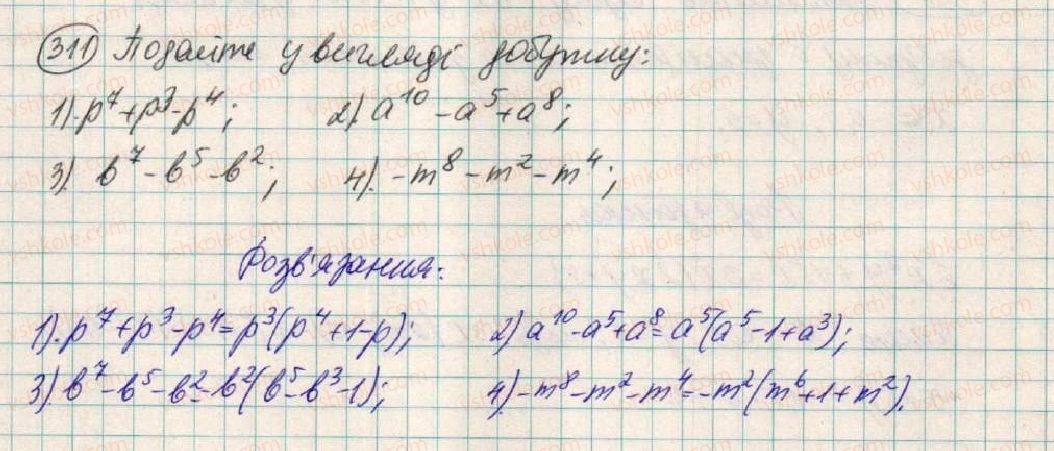 311 Подайте у вигляді добутку:
1). p⁷+p³-p⁴; 2). a¹⁰-a⁵+a⁸;
3) b⁷-b⁵-b²; 4). -m⁸-m²-m⁴;
Розв'язання:
1). p⁷+p³-p⁴=p³(p⁴+1-p); 2) a¹⁰-a⁵+a⁸=a⁵(a⁵-1+a³);
3) b⁷-b⁵-b²=b²(b⁵-b³-1); 4). -m⁸-m²-m⁴=-m²(m⁶+1+m²).